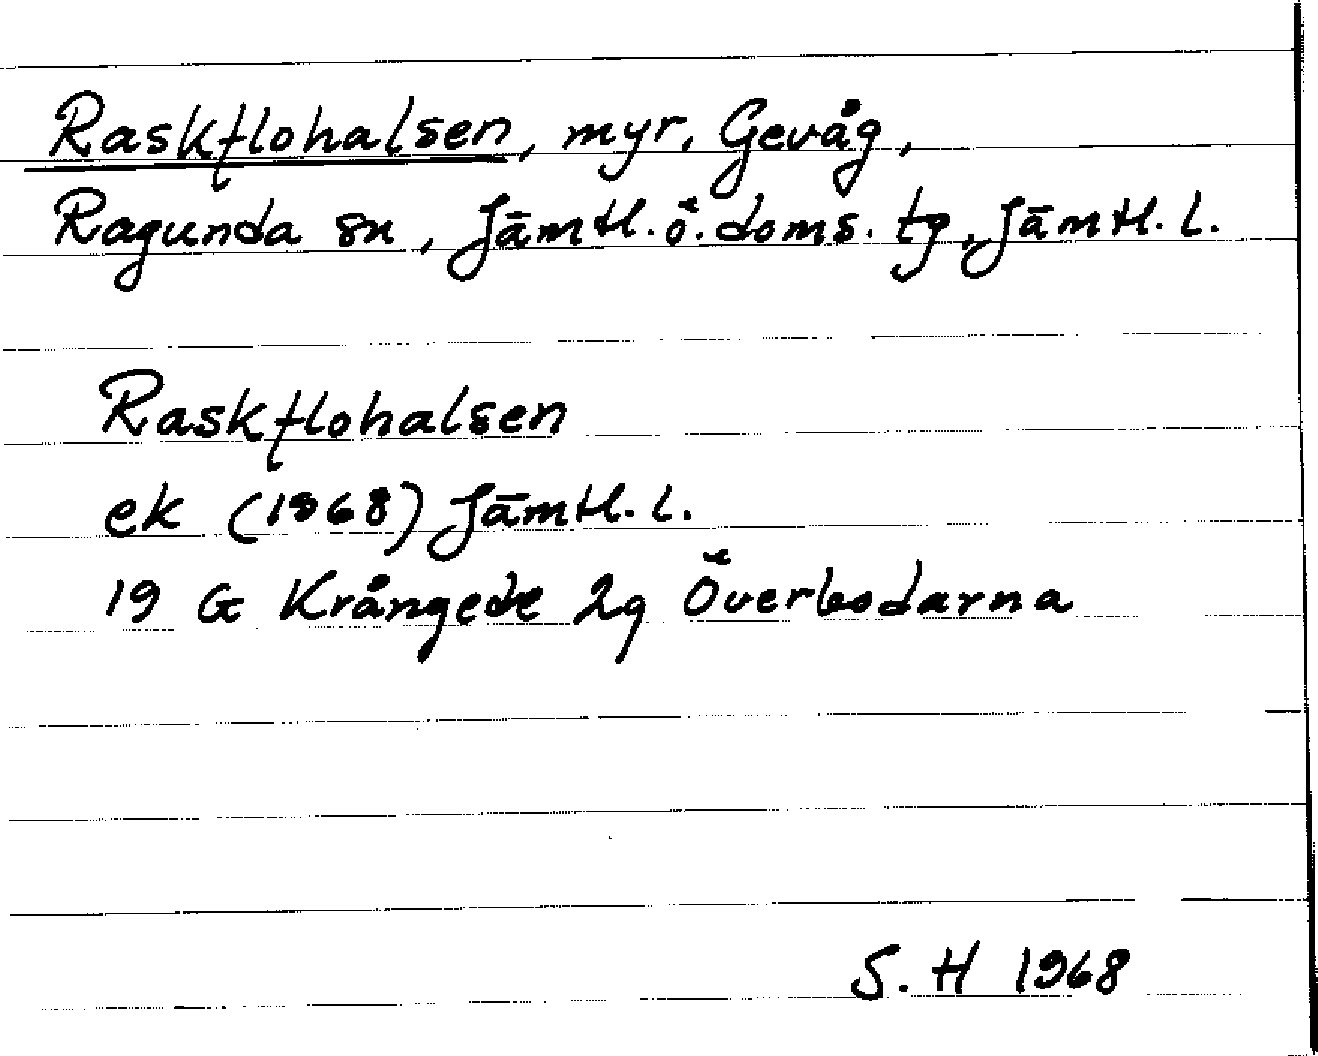 Raskflohalsen, myr, Gevåg,
Ragunda sn, Jämtl.ö.doms. tg, Jämtl. l.
Raskflohalsen
ek (1968) Jämtl. l.
19 G Krångede 2g Överbodarna
S. H 1968